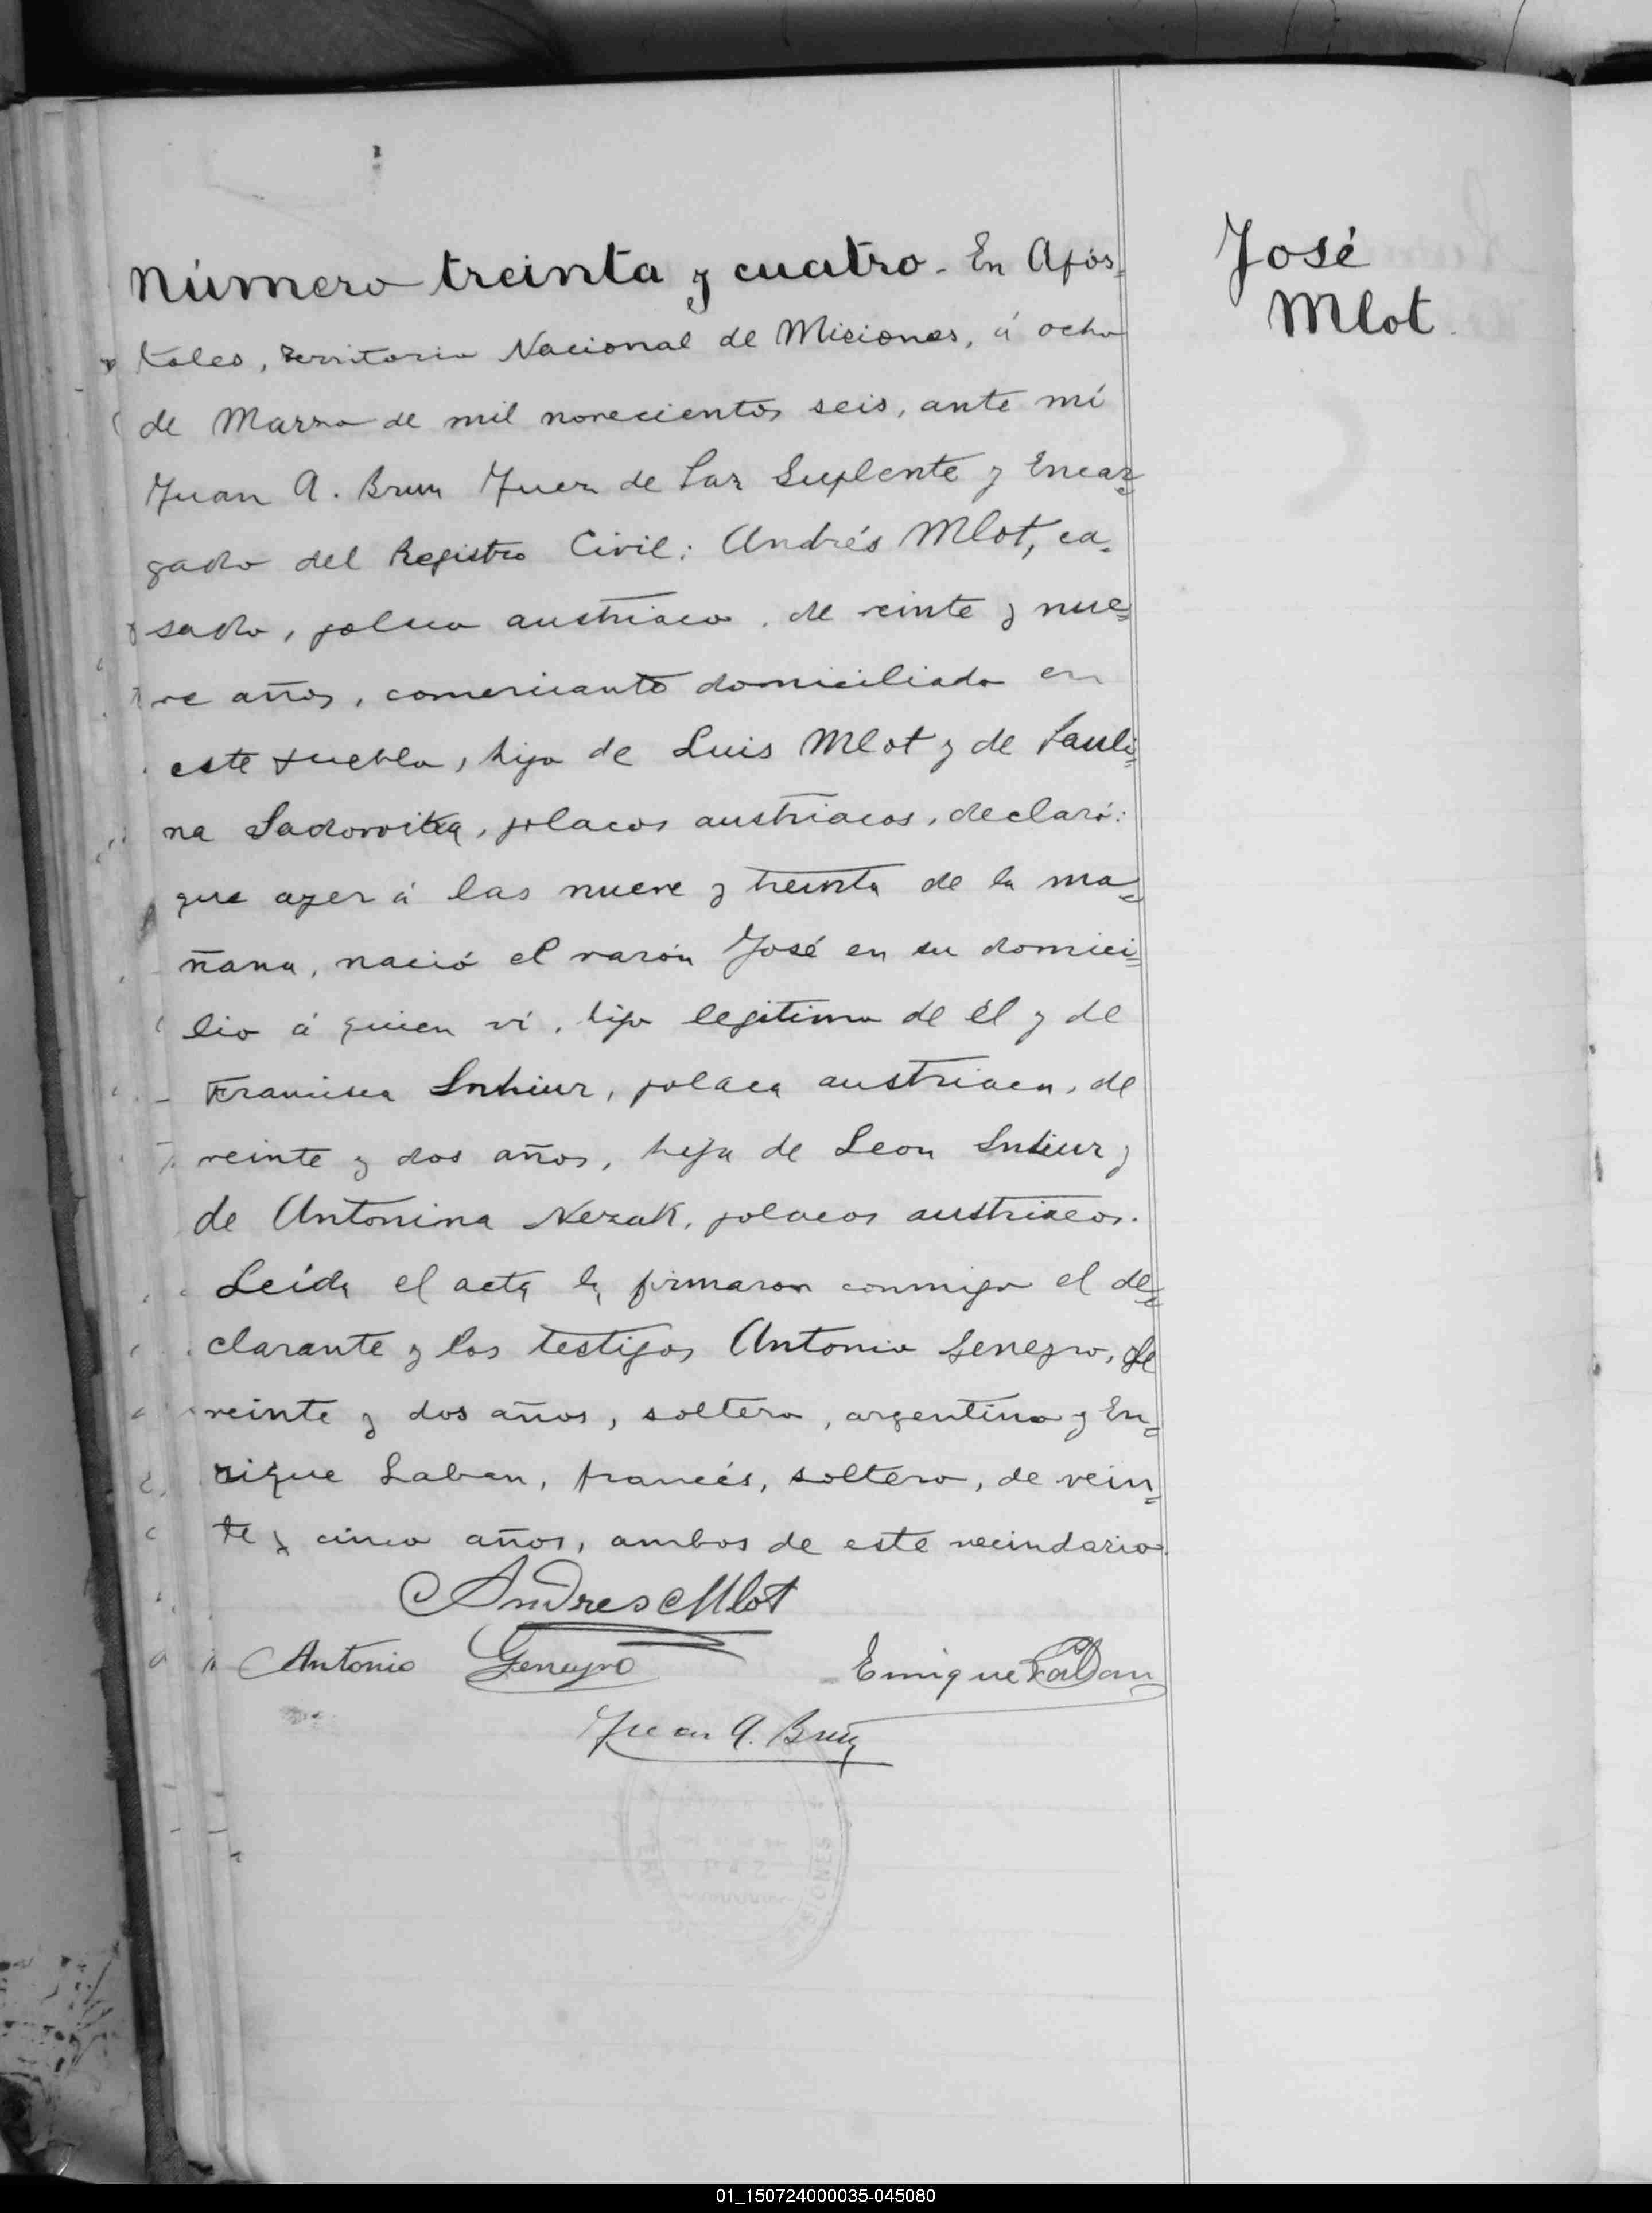 Número treinta y cuatro. En Após-
José
Mlot
toles, territorio Nacional de Misiones, á ocho
de Marzo de mil novecientos seis, ante mí
Juan A. Brun Juez de Paz Suplente y Encar=
gado del Registro Civil: Andrés Mlot, ca-
sado, polaco austriaco, de veinte y nue=
ve años, comerciante domiciliado en
este pueblo, hijo de Luis Mlot y de Pauli=
na polacos austriacos, declaró:
que ayer á las nueve y treinta de la ma=
ñana, nació el varón José en su domici=
lio á quien ví, hijo legitimo de él y de
Francisca polaca austriaca, de
veinte y dos años, hija de Leon y
de Antonina Nezak, polacos austriacos.
Leída el acta la firmaron conmigo el de=
clarante y los testigos Antonio Geneyro, de
veinte y dos años, soltero, argentino y En=
rique Laban, francés, soltero, de vein=
te y cinco años, ambos de este vecindario.
Andres Mlot
Antonio Geneyro Enrique Laban
Juan A. Brun
01_150724000035-045080